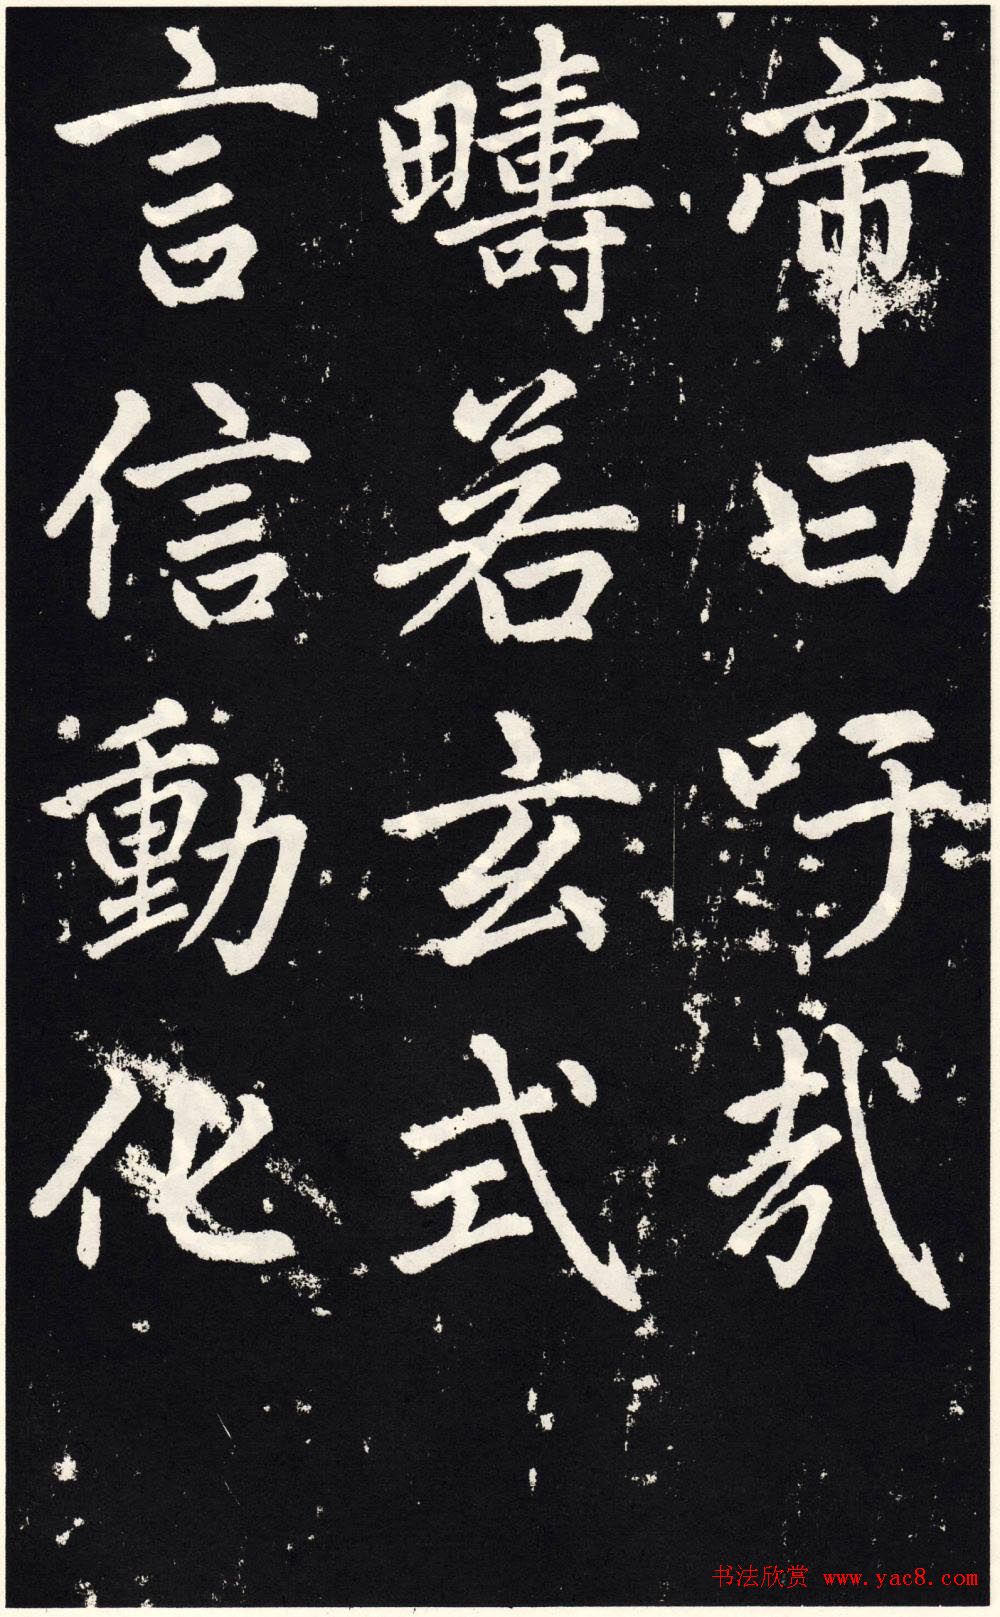 帝曰吁哉
疇若玄式
言信動化
书法欣赏 www.yac8.com